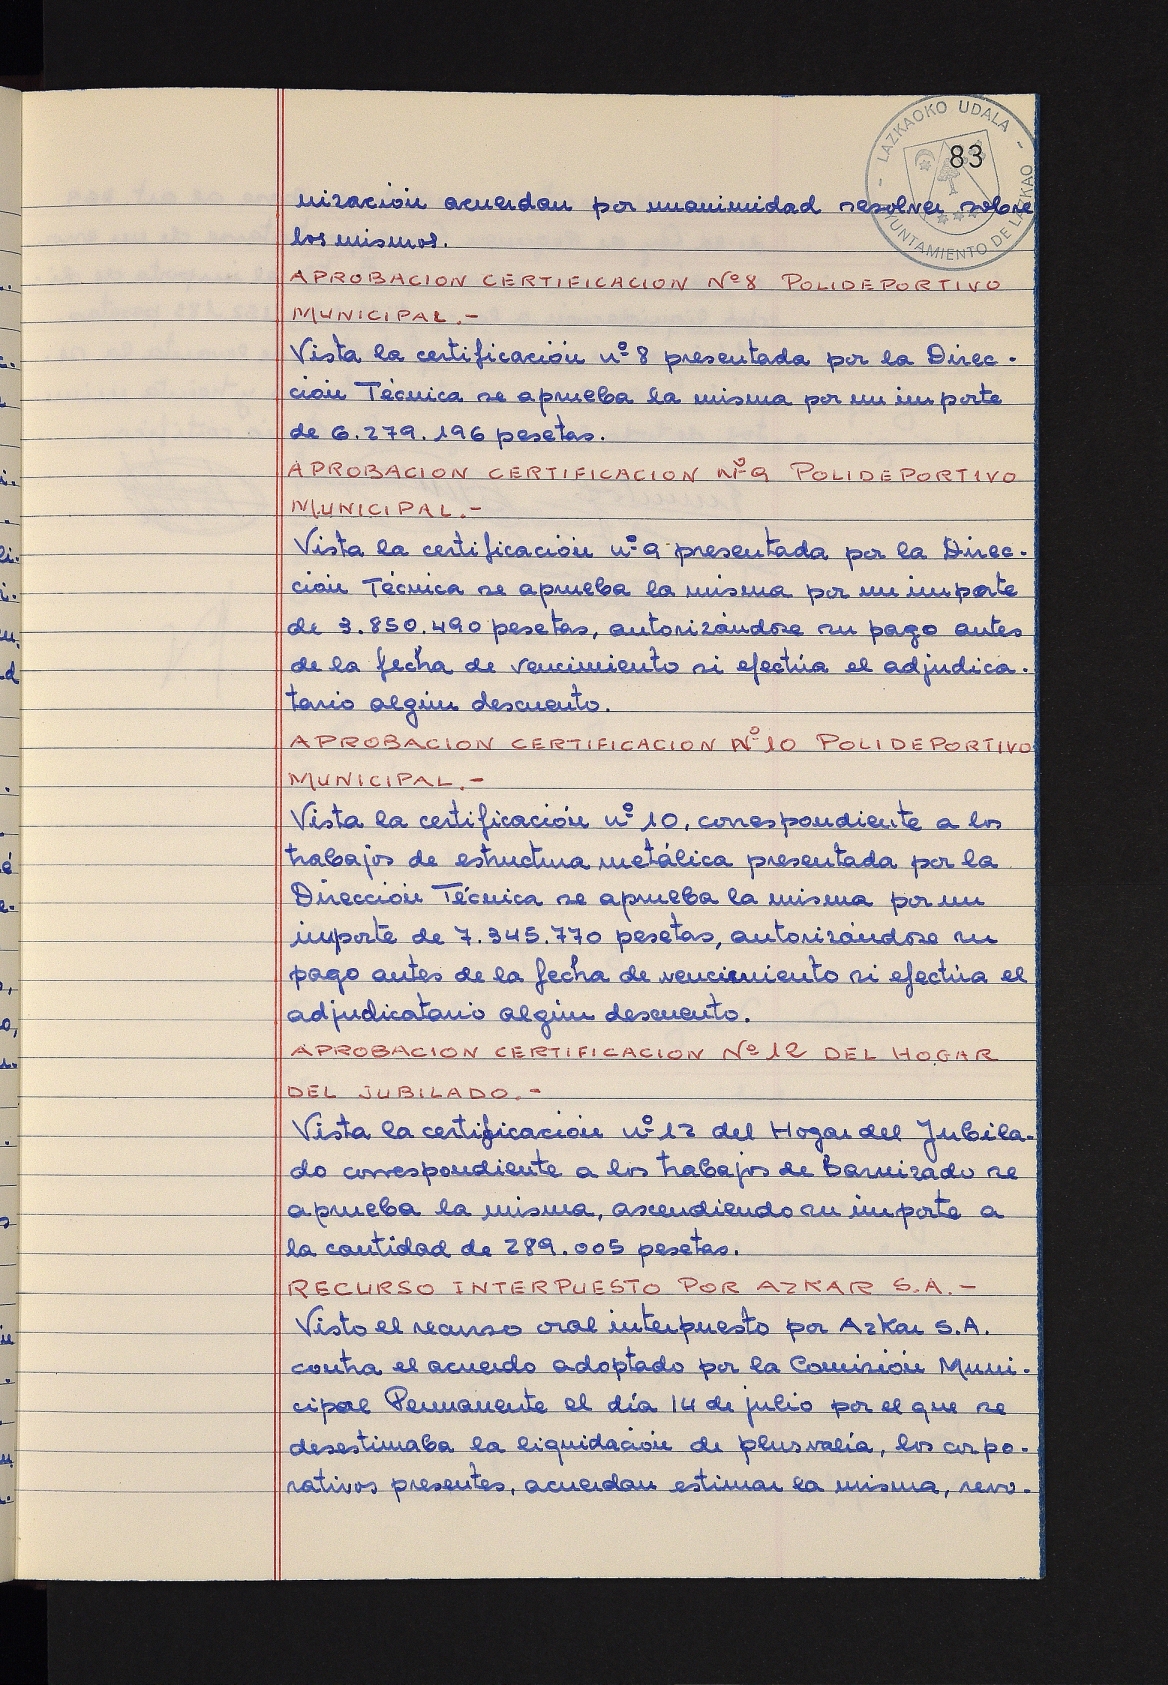 LAZKAOKO UDALA - AYUNTAMIENTO DE LAZKAO -
83
nización acuerdan por unanimidad resolver sobre
los mismos.
APROBACION CERTIFICACION Nº 8 POLIDEPORTIVO
MUNICIPAL.-
Vista la certificación nº 8 presentada por la Direc-
ción Técnica se aprueba la misma por un importe
de 6.279.196 pesetas.
APROBACION CERTIFICACION Nº 9 POLIDEPORTIVO
MUNICIPAL.-
Vista la certificación nº 9 presentada por la Direc-
ción Técnica se aprueba la misma por un importe
de 3.850.490 pesetas, autorizándose su pago antes
de la fecha de vencimiento si efectúa el adjudica-
tario algún descuento.
APROBACION CERTIFICACION Nº 10 POLIDEPORTIVO
MUNICIPAL.-
Vista la certificación nº 10, correspondiente a los
trabajos de estructura metálica presentada por la
Dirección Técnica se aprueba la misma por un
importe de 7.345.770 pesetas, autorizándose su
pago antes de la fecha de vencimiento si efectúa el
adjudicatario algún descuento.
APROBACION CERTIFICACION Nº 12 DEL HOGAR
DEL JUBILADO.-
Vista la certificación nº 12 del Hogar del Jubila-
do correspondiente a los trabajos de Barnizado se
aprueba la misma, ascendiendo su importe a
la cantidad de 289.005 pesetas.
RECURSO INTERPUESTO POR AZKAR S.A.-
Visto el recurso oral interpuesto por Azkar S.A.
contra el acuerdo adoptado por la Comisión Muni-
cipal Permanente el día 14 de julio por el que se
desestimaba la liquidación de plusvalía, los corpo-
rativos presentes, acuerdan estimar la misma, revo-